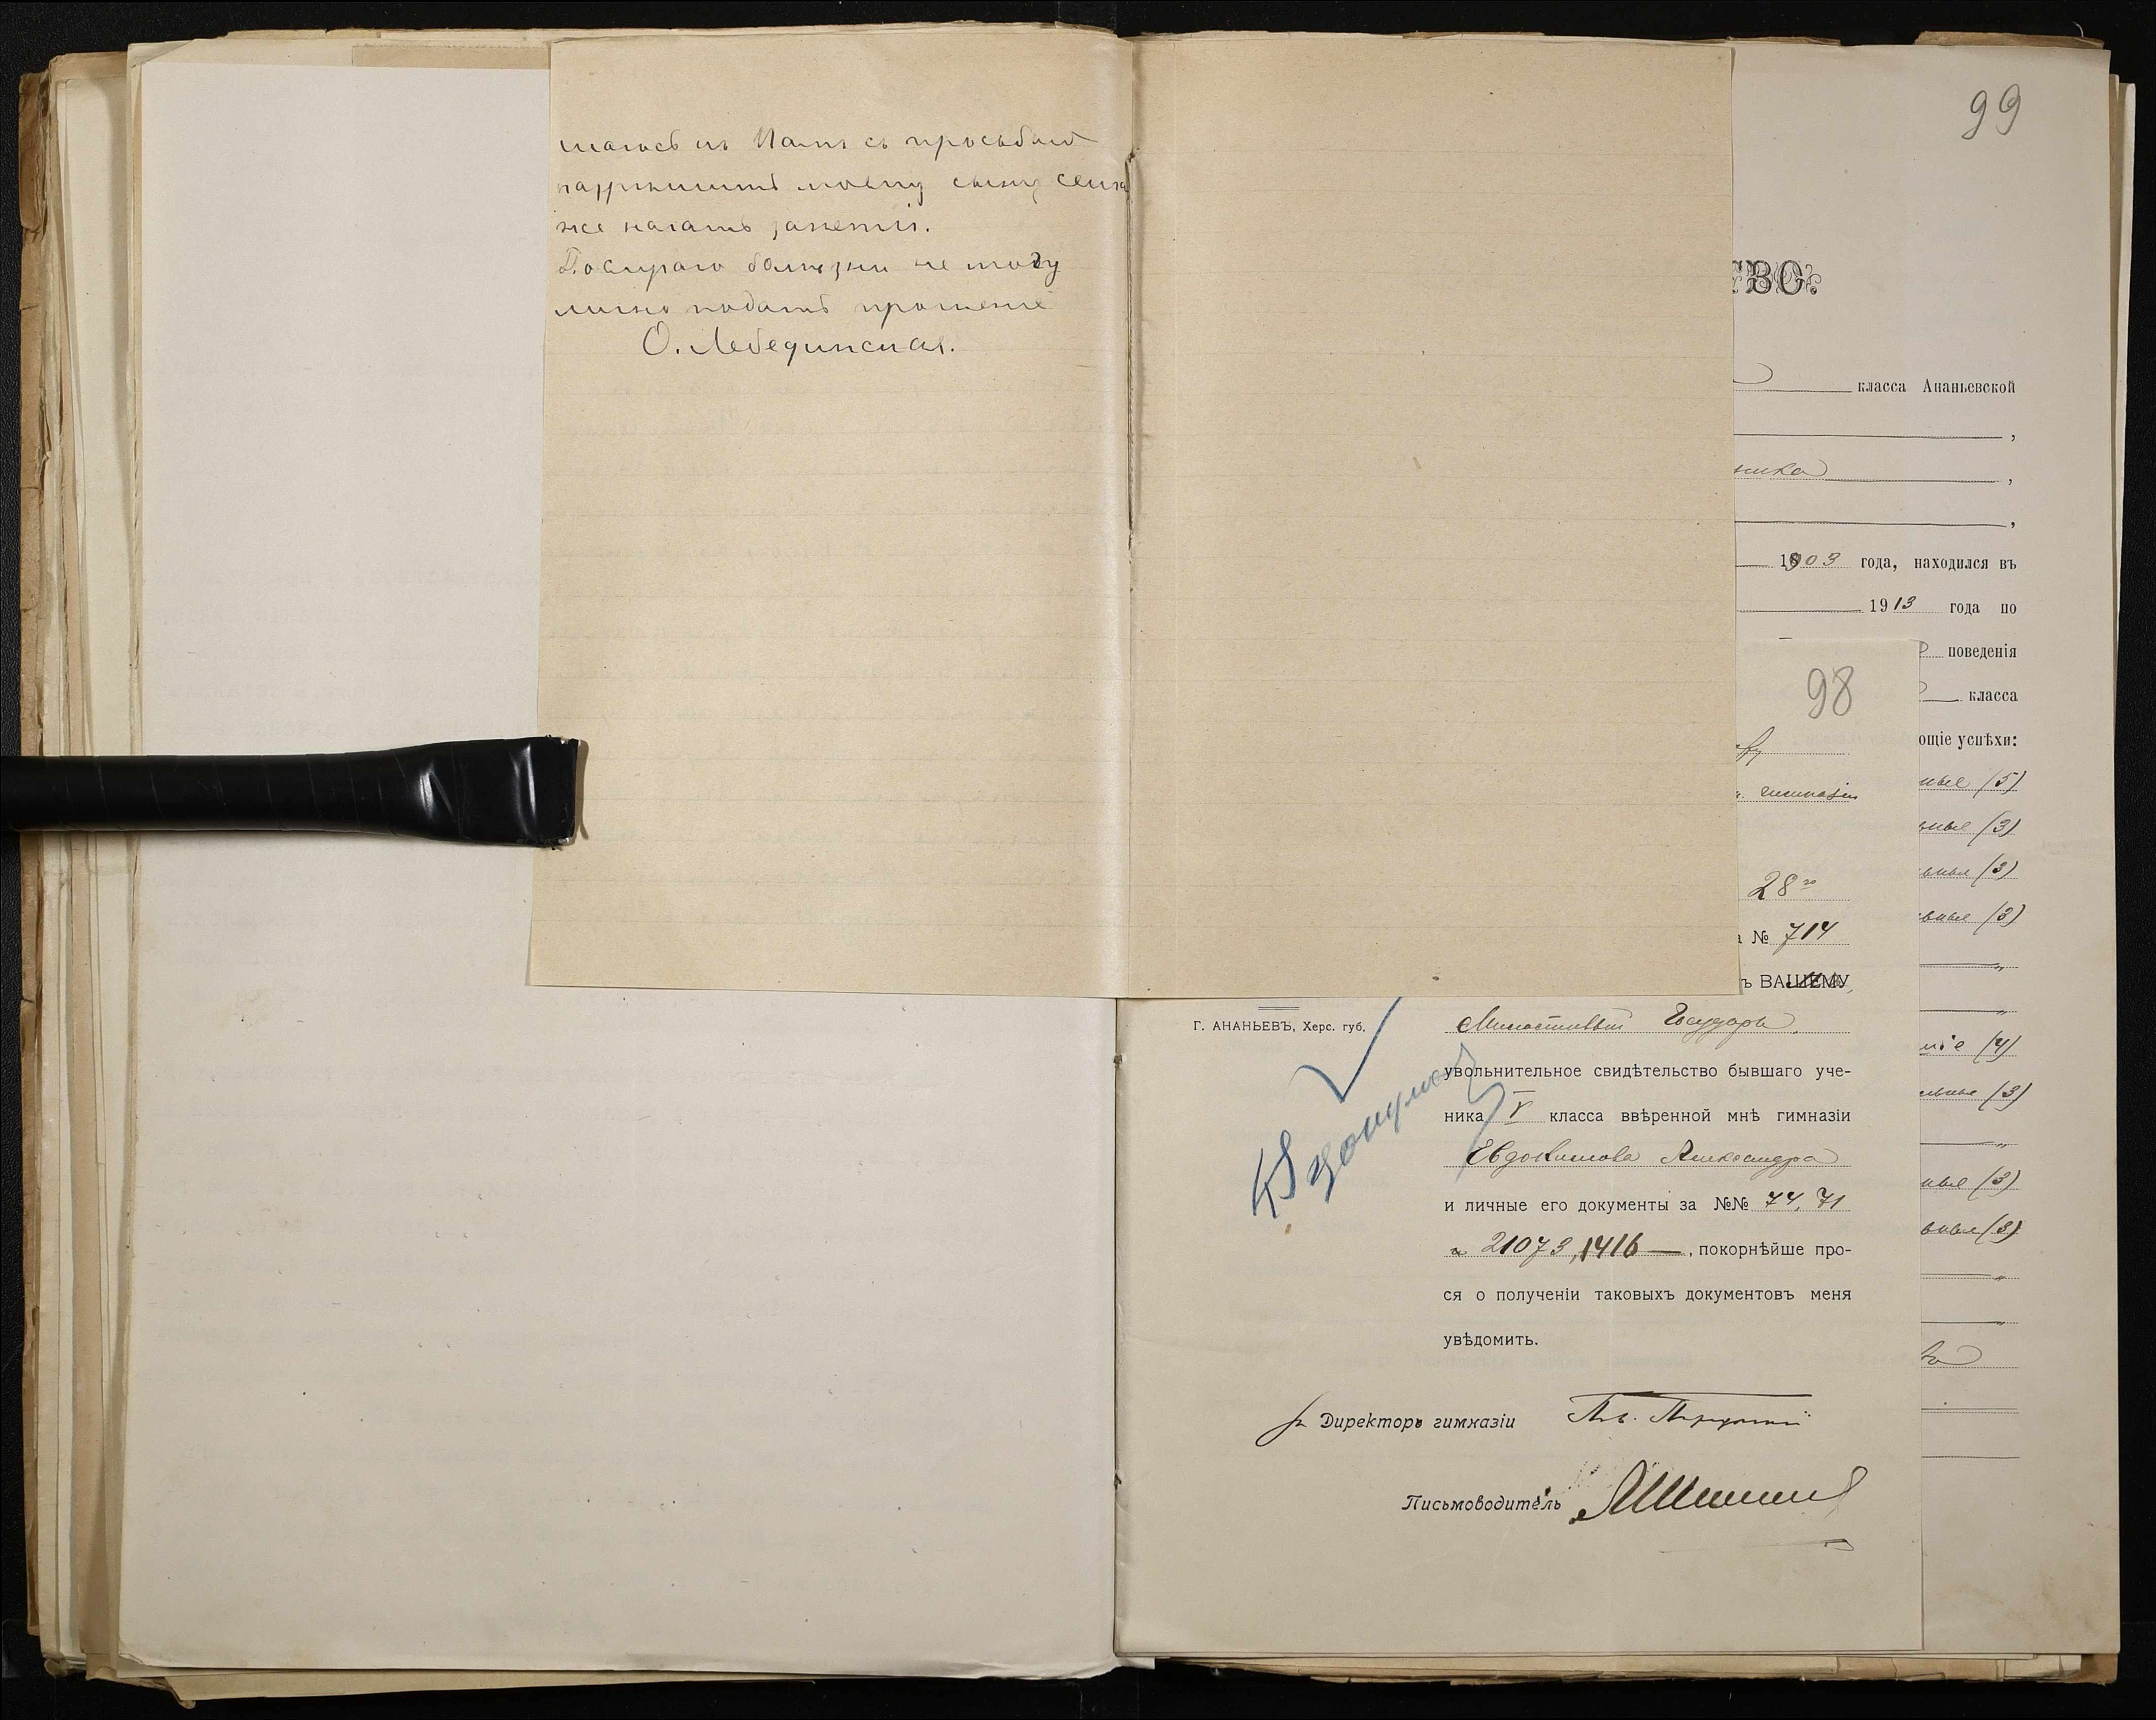 шаюсь къ Вамъ съ просьбой
разрѣшить моему сыну сейчас
же начать занятія.
По случаю болѣзни не могу
лично подать прошеніе
О. Лебединская.
99
ТВО.
класса Ананьевской
ника
1903 года, находился въ
1913 года по
поведенія
класса
ющіе успѣхи:
ные (5)
ныя (3)
ьныя (3)
ьные (3)
„
„
ніе (4)
ельные (3)
„
ные (3)
ьные (3)
„
„
98
гимназіи
28го
№ 714
ъ ВАШЕМУ
Г. АНАНЬЕВЪ, Херс. губ.
Милостивый Государь,
увольнительное свидѣтельство бывшаго уче-
ника V класса ввѣренной мнѣ гимназіи
Евдокимова Александра
и личные его документы за №№ 74, 71
и 21073, 1416 —, покорнѣйше про-
ся о полученіи таковыхъ документовъ меня
увѣдомить.
Директоръ гимназіи
Письмоводитель